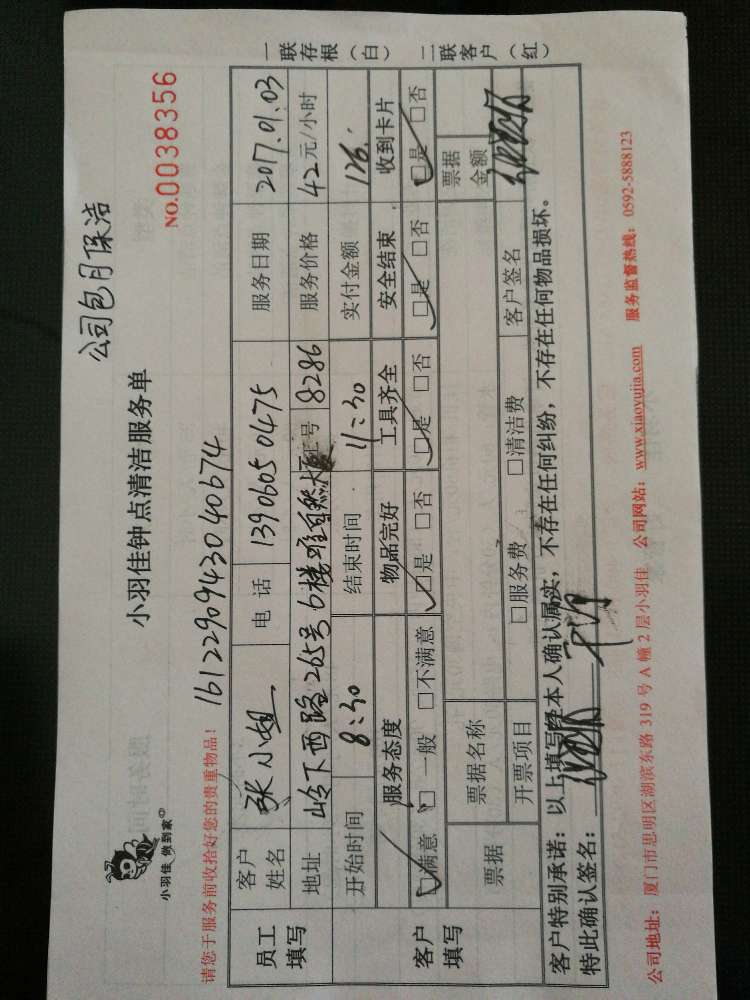 公司包月保洁
小羽佳 做到家
小羽佳钟点清洁服务单
NO.0038356
请您于服务前收拾好您的贵重物品!
16122909430 40674
员工填写
客户姓名 张小姐 电话 13906050475 服务日期 2017.01.03
地址 岭下西路265号6楼唯自然 工号 8286 服务价格 42元/小时
开始时间 8:30 结束时间 11:30 实付金额 126.
客户填写
服务态度 物品完好 工具齐全 安全结束 收到卡片
□满意 □一般 □不满意 □是 □否 □是 □否 □是 □否 □是 □否
票据 票据名称 票据金额
开票项目 □服务费 □清洁费 客户签名
客户特别承诺:以上填写经本人确认属实,不存在任何纠纷,不存在任何物品损坏。
特此确认签名:
公司地址:厦门市思明区湖滨东路 319 号 A 幢 2 层小羽佳 公司网站:www.xiaoyujia.com 服务监督热线:0592-5888123
一联存根(白) 二联客户(红)